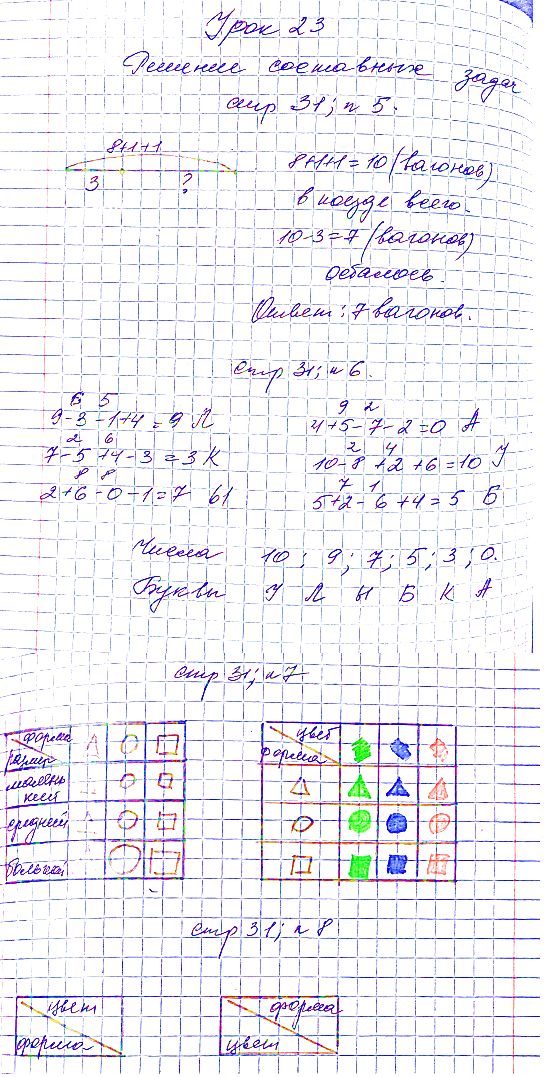 Урок 23
Решение составных задач
стр 31; n 5.
8+1+1
3 ?
8+1+1=10 (вагонов)
в поезде всего.
10-3=7 (вагонов)
осталось.
Ответ: 7 вагонов.
стр 31; n 6.
6 5
9-3-1+4=9 Л
2 6
7-5+4-3=3 К
8 8
2+6-0-1=7 Ы
9 2
4+5-7-2=0 А
2 4
10-8+2+6=10 У
7 1
5+2-6+4=5 Б
Числа 10; 9; 7; 5; 3; 0.
Буквы У Л Ы Б К А
стр 31; n 7
форма
размер
малень
кий
средний
большой
цвет
форма
стр 31; n 8
цвет
форма
форма
цвет